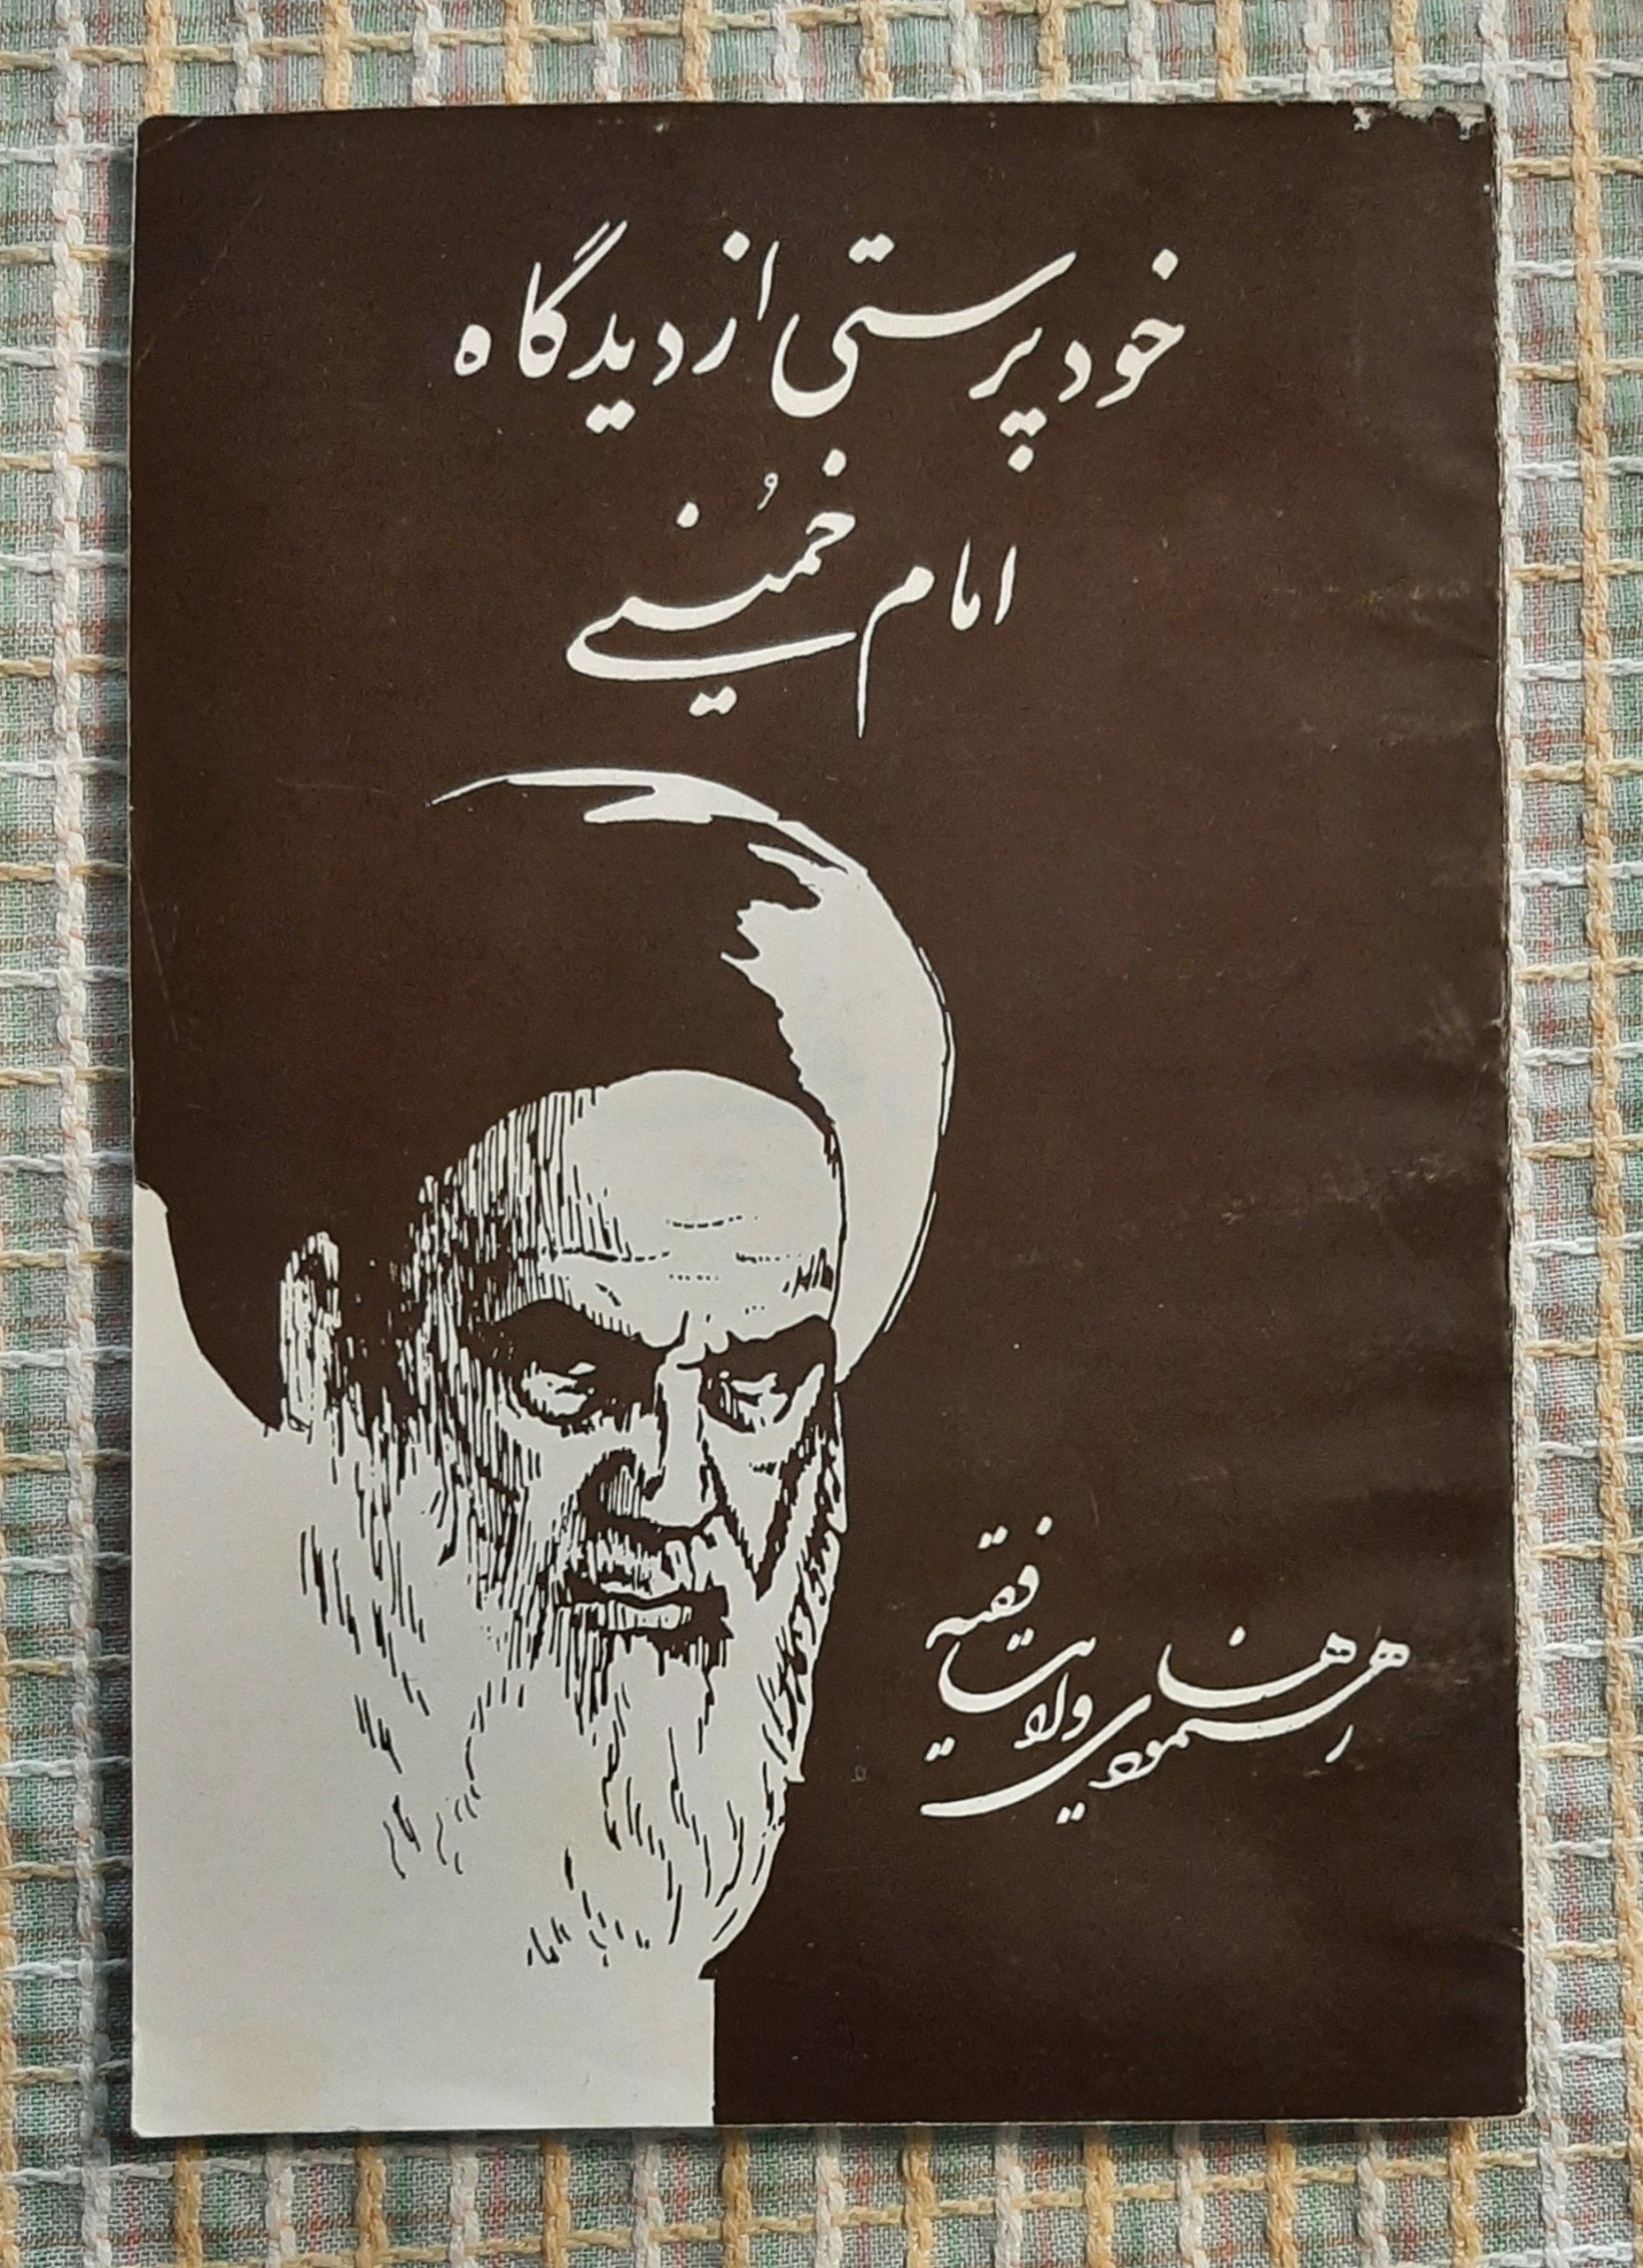 خودپرستی از دیدگاه
امام خُمینی
رهنمودهای
ولایت فقیه